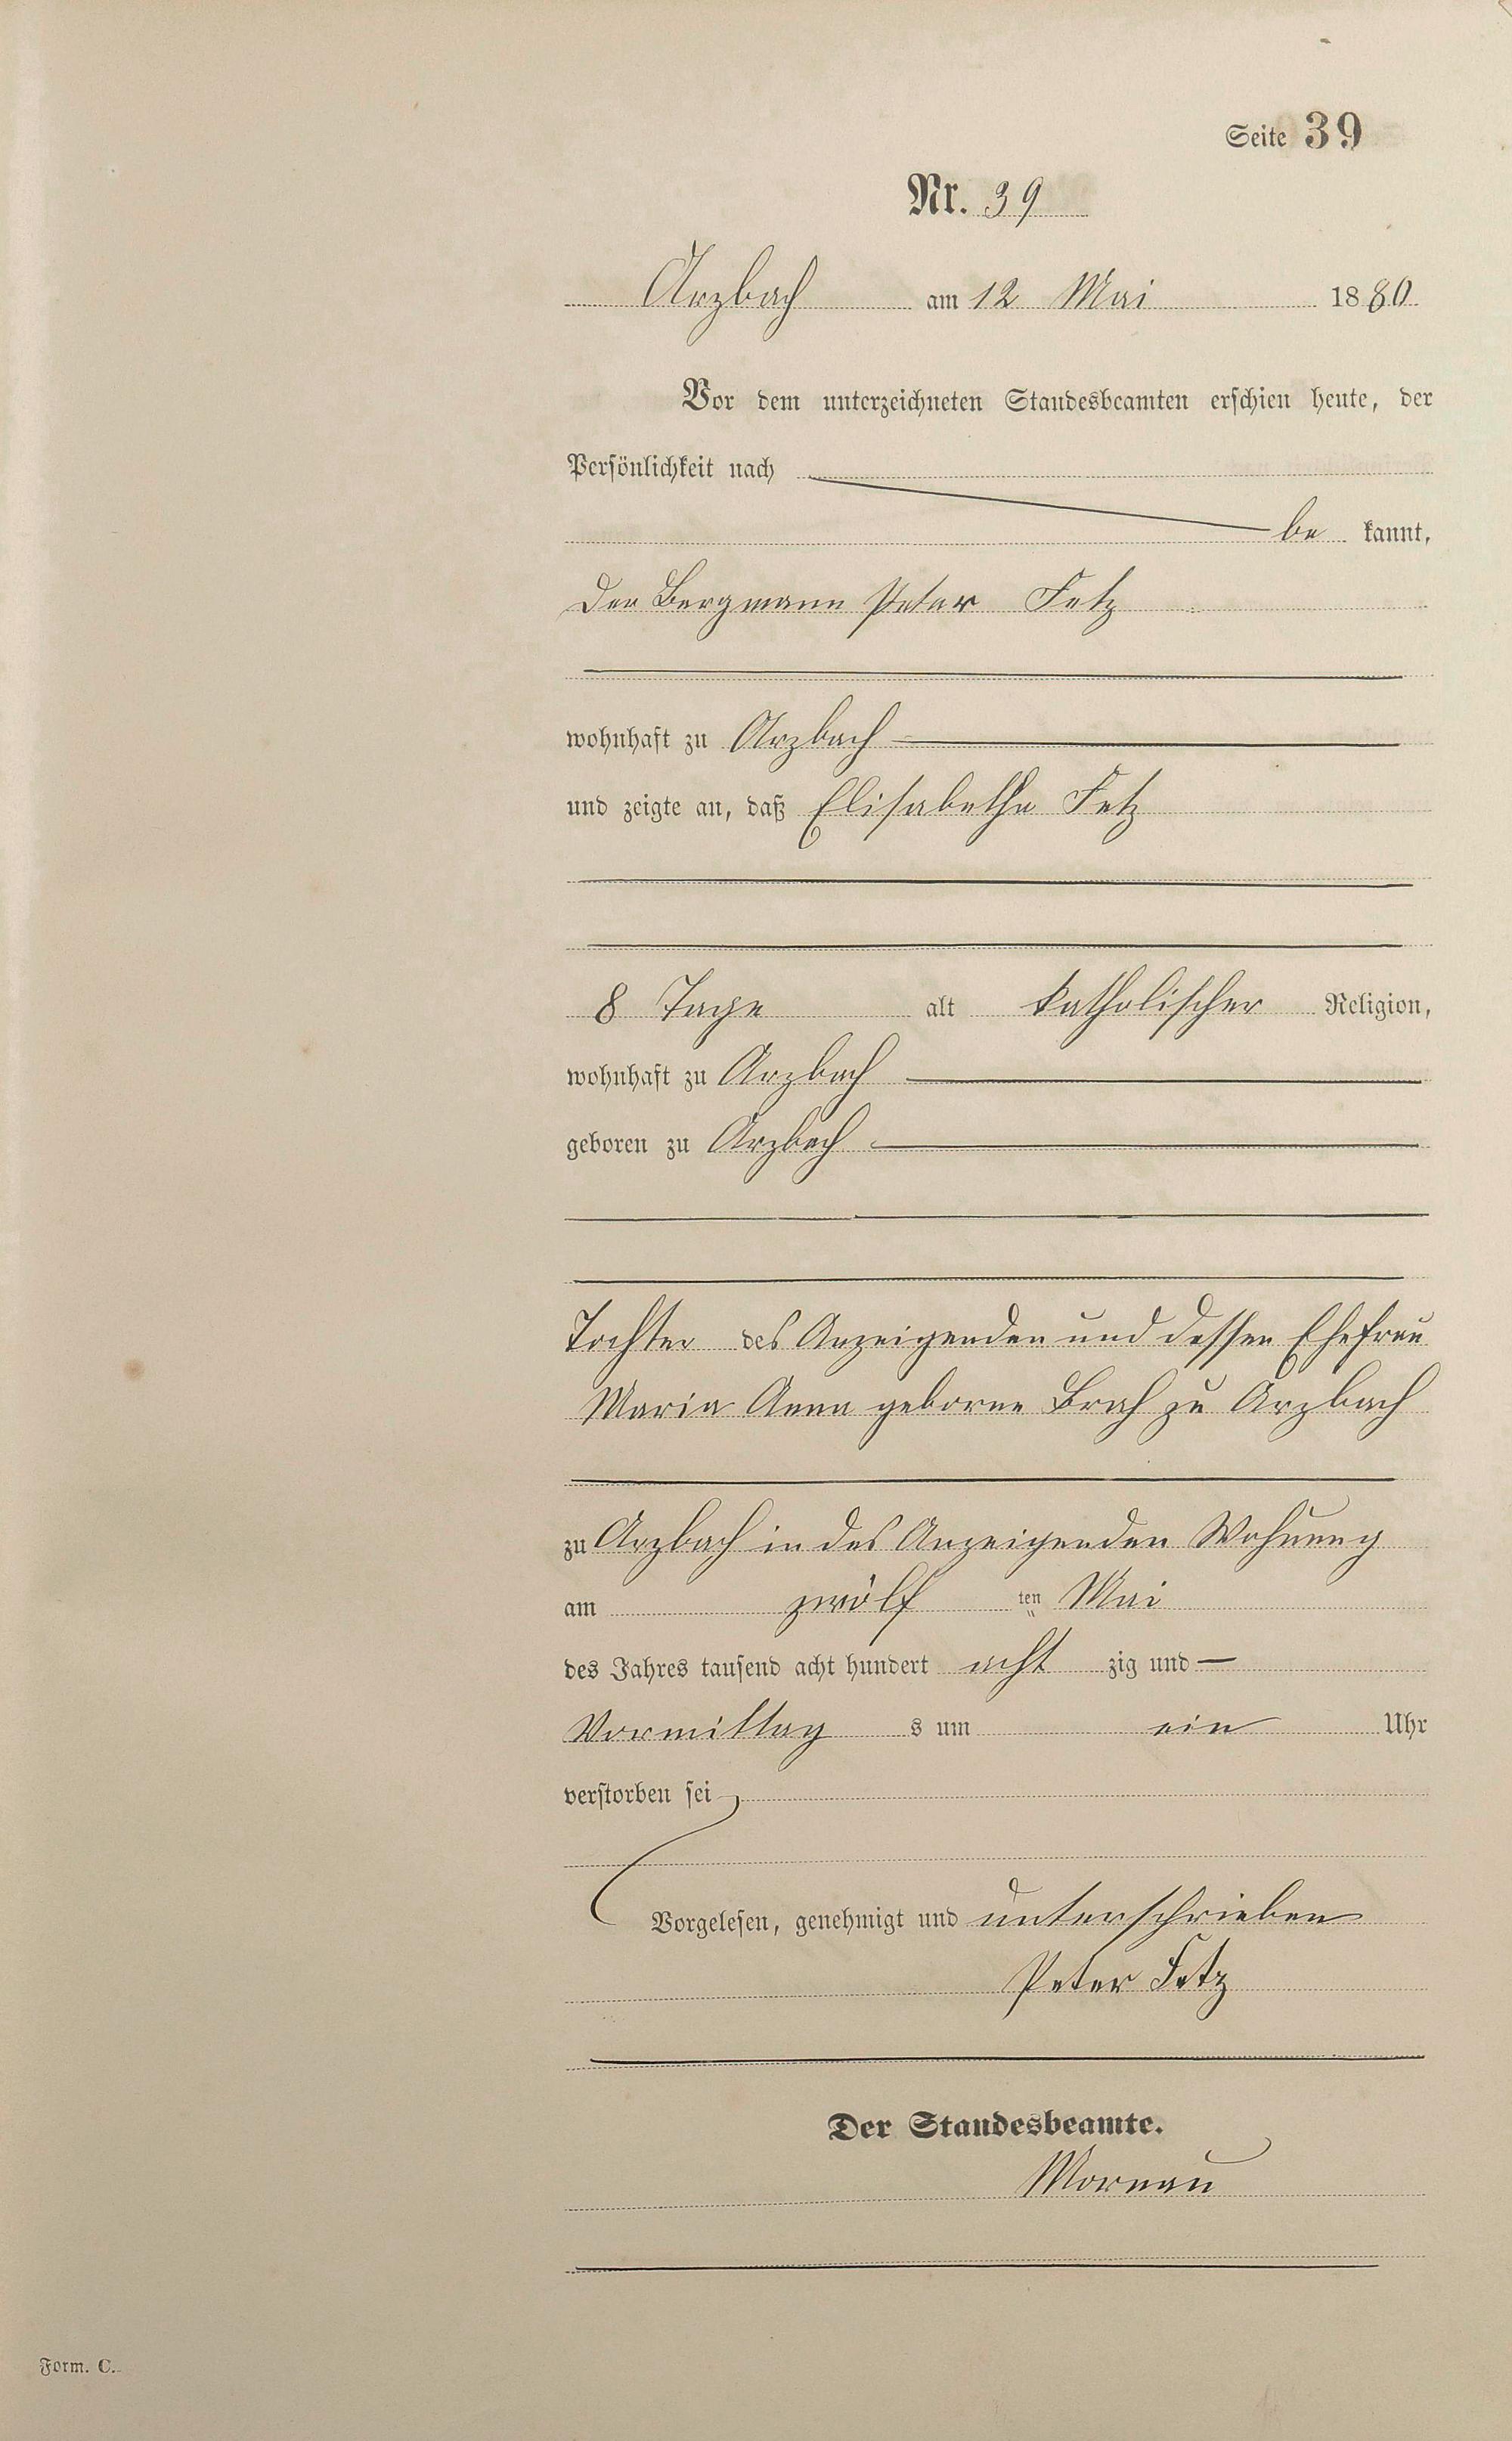 Seite 39
Nr. 39
Arzbach am 12 Mai 1880.
Vor dem unterzeichneten Standesbeamten erschien heute, der
Persönlichkeit nach
be kannt,
Der Bergmann Peter Fetz
wohnhaft zu Arzbach
und zeigte an, daß Elisabetha Fetz
8 Tage alt katholischer Religion,
wohnhaft zu Arzbach
geboren zu Arzbach
Tochter des Anzeigenden und dessen Ehefrau
Maria Anna geborne zu Arzbach
zu Arzbach in des Anzeigenden Wohnung
am zwölf ten Mai
des Jahres tausend acht hundert acht zig und —
Vormittag s um ein Uhr
verstorben sei
Vorgelesen, genehmigt und unterschrieben
Peter Fetz
Der Standesbeamte.
Form. C.